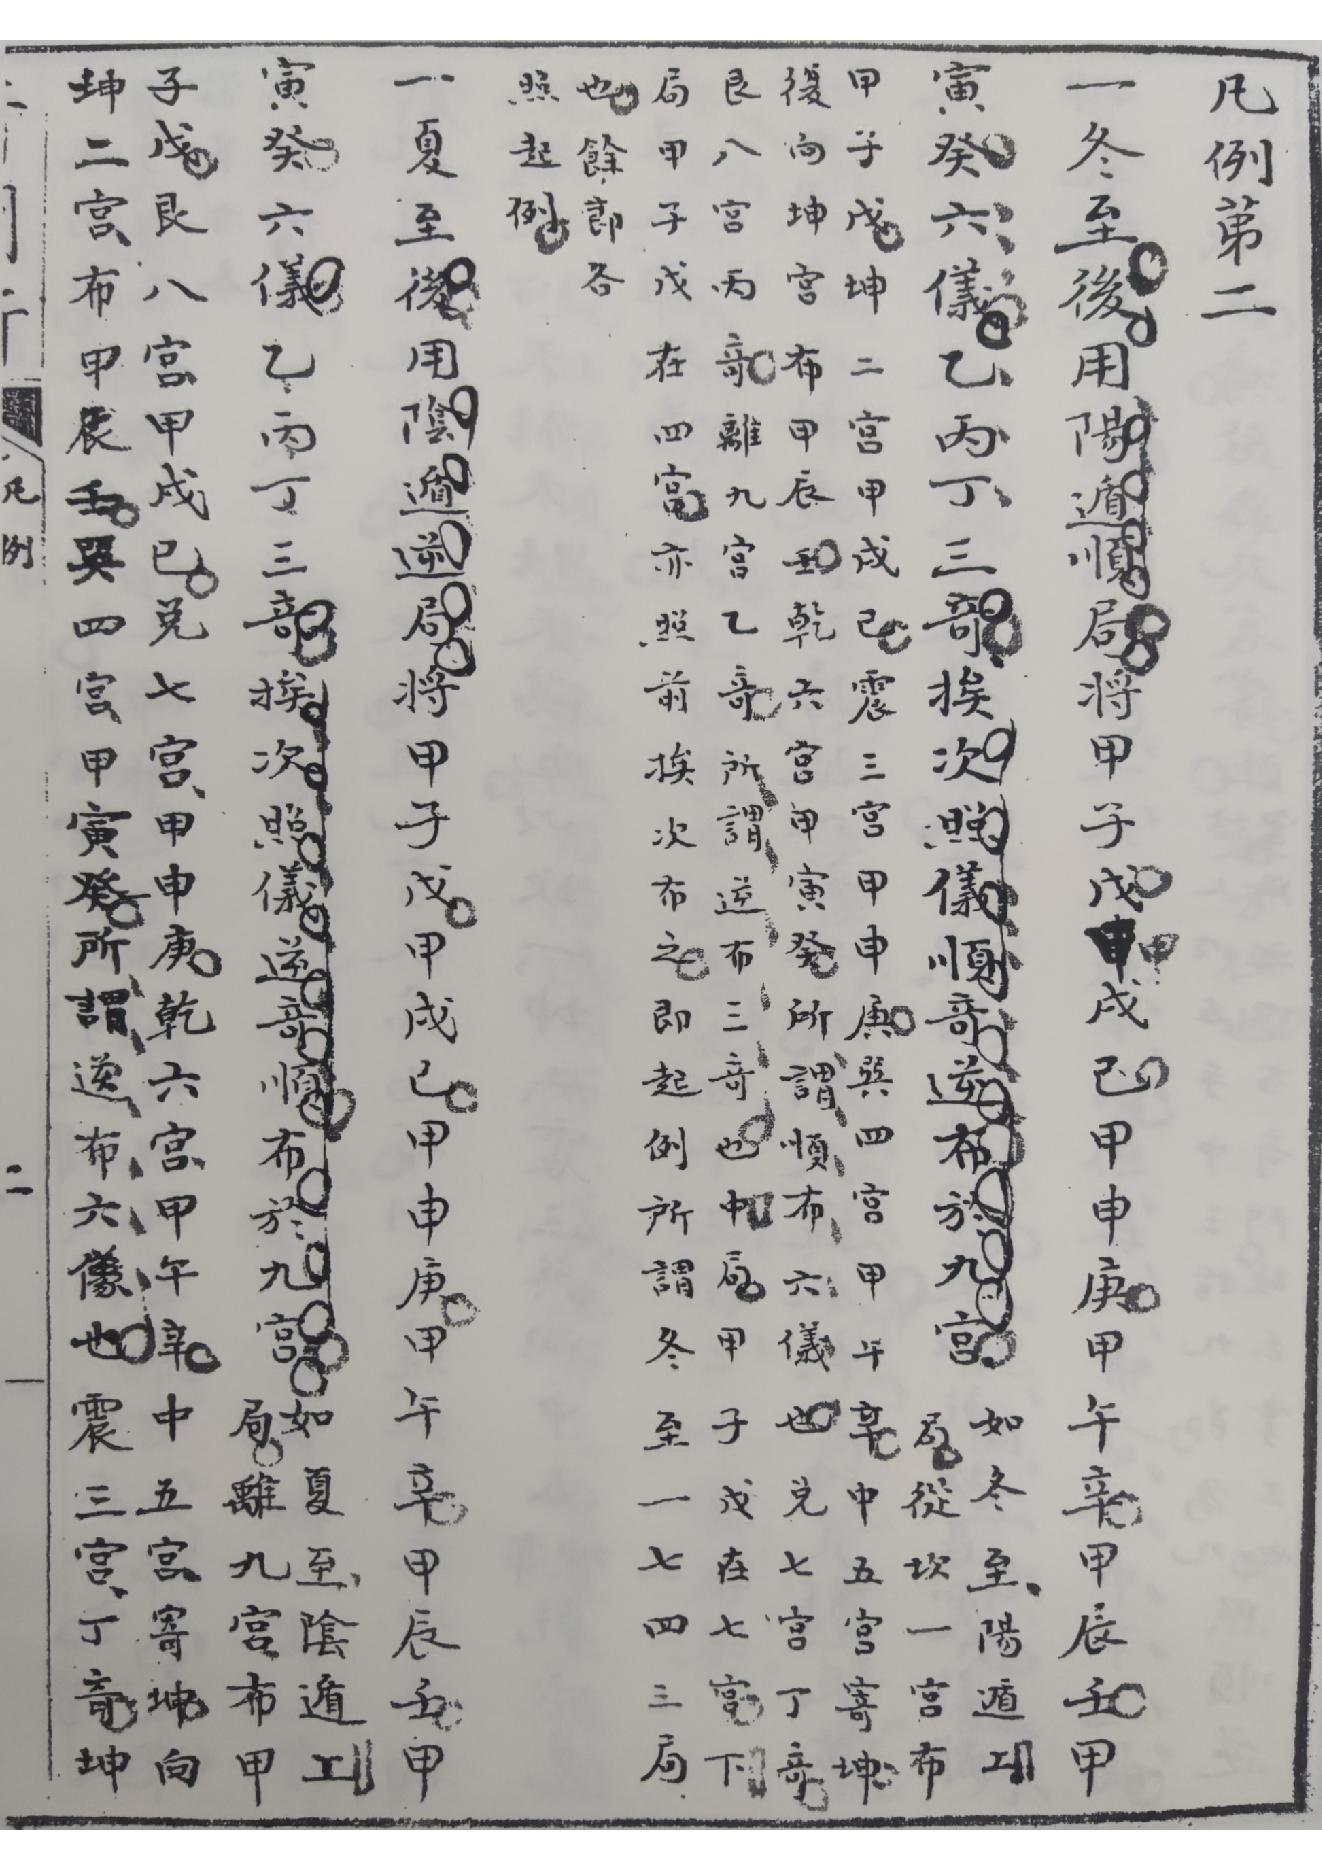 凡例第二
一冬至後用陽遁順局將甲子戊甲戌己甲申庚甲午辛甲辰壬甲
寅癸六儀乙丙丁三奇挨次照儀順奇逆布於九宮
如冬至陽遁上
局從坎一宮布
甲子戊坤二宮甲戌己震三宮甲申庚巽四宮甲午辛中五宮寄坤
復向坤宮布甲辰壬乾六宮甲寅癸所謂順布六儀也兌七宮丁奇
艮八宮丙奇離九宮乙奇所謂逆布三奇也中局甲子戊在七宮下
局甲子戊在四宮亦照前挨次布之即起例所謂冬至一七四三局
也餘節各
照起例
一夏至後用陰遁逆局將甲子戊甲戌己甲申庚甲午辛甲辰壬甲
寅癸六儀乙丙丁三奇挨次照儀逆奇順布於九宮
如夏至陰遁上
局離九宮布甲
子戊艮八宮甲戌己兌七宮甲申庚乾六宮甲午辛中五宮寄坤向
坤二宮布甲辰壬巽四宮甲寅癸所謂逆布六儀也震三宮丁奇坤
凡例
二